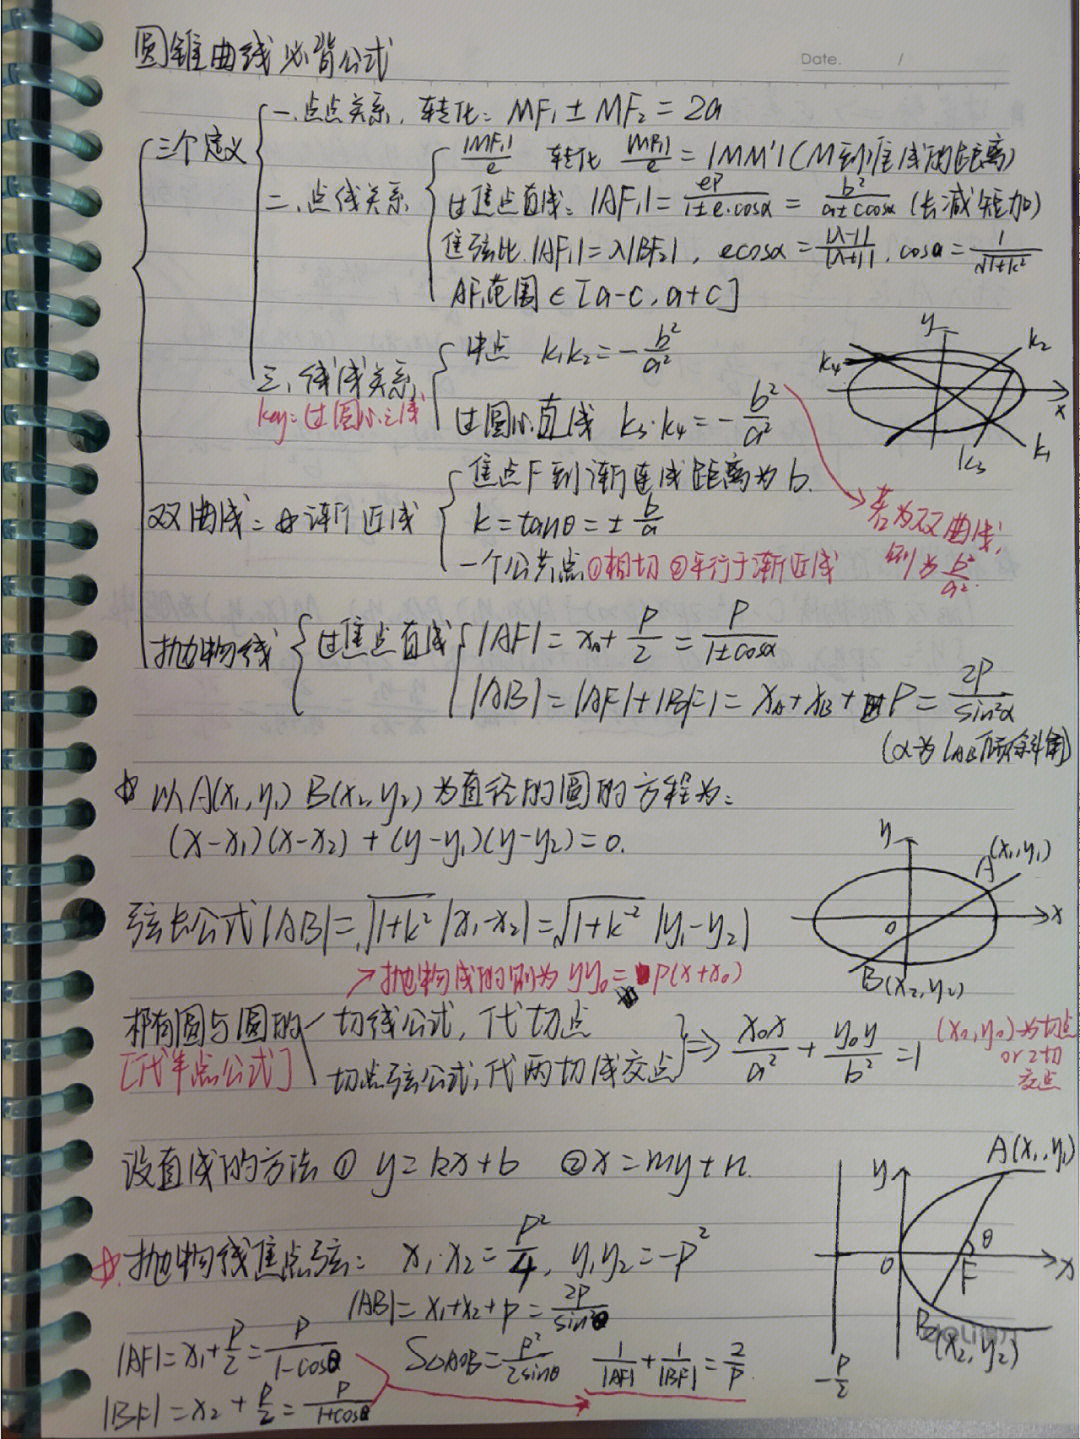 圆锥曲线必背公式
Date. /
三个定义
一、点点关系, 转化: MF₁ ± MF₂ = 2a
二、点线关系
|MF₁|/e 转化 |MF₁|/e = |MM'| (M到准线的距离)
过焦点直线: |AF₁| = ep/(1±e·cosα) = b²/(a±c cosα) (长减短加)
焦弦比 |AF₁| = λ|BF₂|, ecosα = |λ-1|/|λ+1|, cosα = 1/√(1+k²)
AF₁范围 ∈ [a-c, a+c]
三、线线关系
key: 过圆心之线
中点 k₁k₂ = -b²/a²
过圆心直线 k₃·k₄ = -b²/a²
若为双曲线,
则为 b²/a².
y
k₂
k₄
x
k₃
k₁
双曲线: 渐近线
焦点F到渐近线距离为b.
k = tanθ = ± b/a
一个公共点 ①相切 ②平行于渐近线
抛物线
过焦点直线
|AF| = x₀ + p/2 = p/(1±cosα)
|AB| = |AF|+|BF| = x_A + x_B + P = 2P/sin²α
(α为l_AB倾斜角)
以A(x₁,y₁) B(x₂,y₂)为直径的圆的方程为:
(x-x₁)(x-x₂) + (y-y₁)(y-y₂) = 0.
弦长公式 |AB| = √(1+k²) |x₁-x₂| = √(1+k⁻²) |y₁-y₂|
y
A(x₁,y₁)
0
x
B(x₂,y₂)
抛物线的则为 yy₀ = p(x+x₀)
椭圆与圆的
[代半点公式]
切线公式, 代切点
切点弦公式, 代两切线交点
⇒ x₀x/a² + y₀y/b² = 1
(x₀,y₀)为切点
or 2切
交点
设直线的方法 ① y = kx+b ② x = my+n.
抛物线焦点弦: x₁·x₂ = P²/4, y₁y₂ = -p²
|AB| = x₁+x₂+p = 2P/sin²θ
|AF| = x₁ + p/2 = p/(1-cosθ)
S△AOB = P²/2sinθ 1/|AF| + 1/|BF| = 2/P
|BF| = x₂ + p/2 = p/(1+cosθ)
y
A(x₁,y₁)
θ
0
F
x
B(x₂,y₂)
-p/2